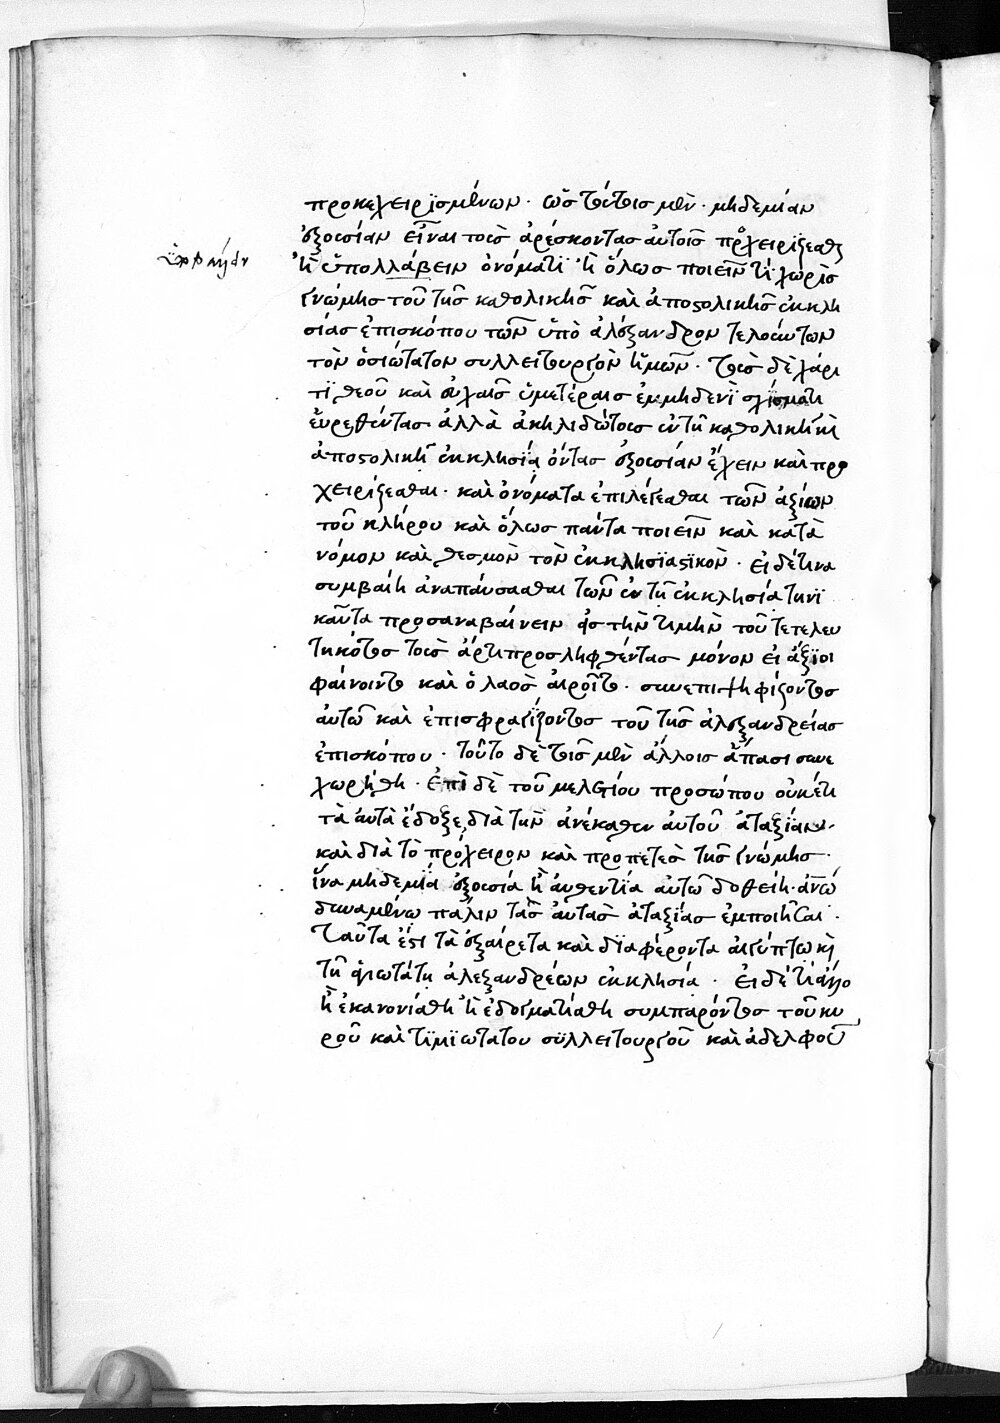 προκεχειρϊσμένων · ὡς τούτοις μὲν · μηδεμίαν
ἐξουσίαν εἶναι τοὺς ἀρέσκοντας αὐτοῖς προχειρίζεσθαι
ἢ ὑπολλάβειν ὀνόματϊ ἢ ὅλως ποιεῖν τὶ χωρὶς
γνώμης τοῦ τῆς καθολικῆς καὶ ἀποστολικῆς ἐκκλη
σίας ἐπισκόπου τῶν ὑπὸ ἀλέξανδρον τελούντων
τὸν ὁσιώτατον συλλειτουργὸν ἡμῶν · τοὺς δὲ χάρι
τϊ θεοῦ καὶ εὐχαῖς ὑμετέραις ἐμ μηδενῒ σχίσματι
εὑρεθέντας ἀλλὰ ἀκηλιδώτους ἐν τῆ καθολικῆ καὶ
ἀποστολικῆ ἐκκλησίᾳ ὄντας ἐξουσίαν ἔχειν καὶ προ
χειρίζεσθαι · καὶ ὀνόματα ἐπιλέγεσθαι τῶν ἀξίων
τοῦ κλήρου καὶ ὅλως πάντα ποιεῖν καὶ κατὰ
νόμον καὶ θεσμὸν τὸν ἐκκλησϊαστϊκὸν · εἰ δέ τινα
συμβαίη ἀναπαύσασθαι τῶν ἐν τῆ ἐκκλησία τηνϊ
καῦτα προσαναβαίνειν εἰς τὴν τιμὴν τοῦ τετελευ
τηκότος τοὺς ἄρτι προσληφθέντας μόνον εἰ ἄξϊοι
φαίνοιντο καὶ ὁ λαὸς αἱροῖτο · συνεπιψηφίζοντος
αὐτῶ καὶ ἐπισφραγίζοντος τοῦ τῆς ἀλεξανδρείας
ἐπισκόπου · τοῦτο δὲ τοῖς μὲν ἄλλοις ἅπασι συνε
χωρήθη · ἐπὶ δὲ τοῦ μελετίου προσώπου οὐκέτι
τὰ αὐτὰ ἔδοξε διὰ τὴν ἀνέκαθεν αὐτοῦ ἀταξίαν ·
καὶ διὰ τὸ πρόχειρον καὶ προπετὲς τῆς γνώμης ·
ἵνα μηδεμία ἐξουσία ἢ αὐθεντία αὐτῶ δοθείη · ἀνῶ
δυναμένω πάλιν τὰς αὐτὰς ἀταξίας ἐμποιῆσαι ·
Ταῦτα ἐστι τὰ ἐξαίρετα καὶ δϊαφέροντα αἰγύπτω καὶ
τῆ ἁγιωτάτη ἀλεξανδρέων ἐκκλησία · εἰ δέ τι ἄλλο
ἢ ἐκανονίσθη ἢ ἐδογματίσθη συμπαρόντος τοῦ κυ
ροῦ καὶ τϊμϊωτατου συλλειτουργοῦ καὶ ἀδελφοῦ